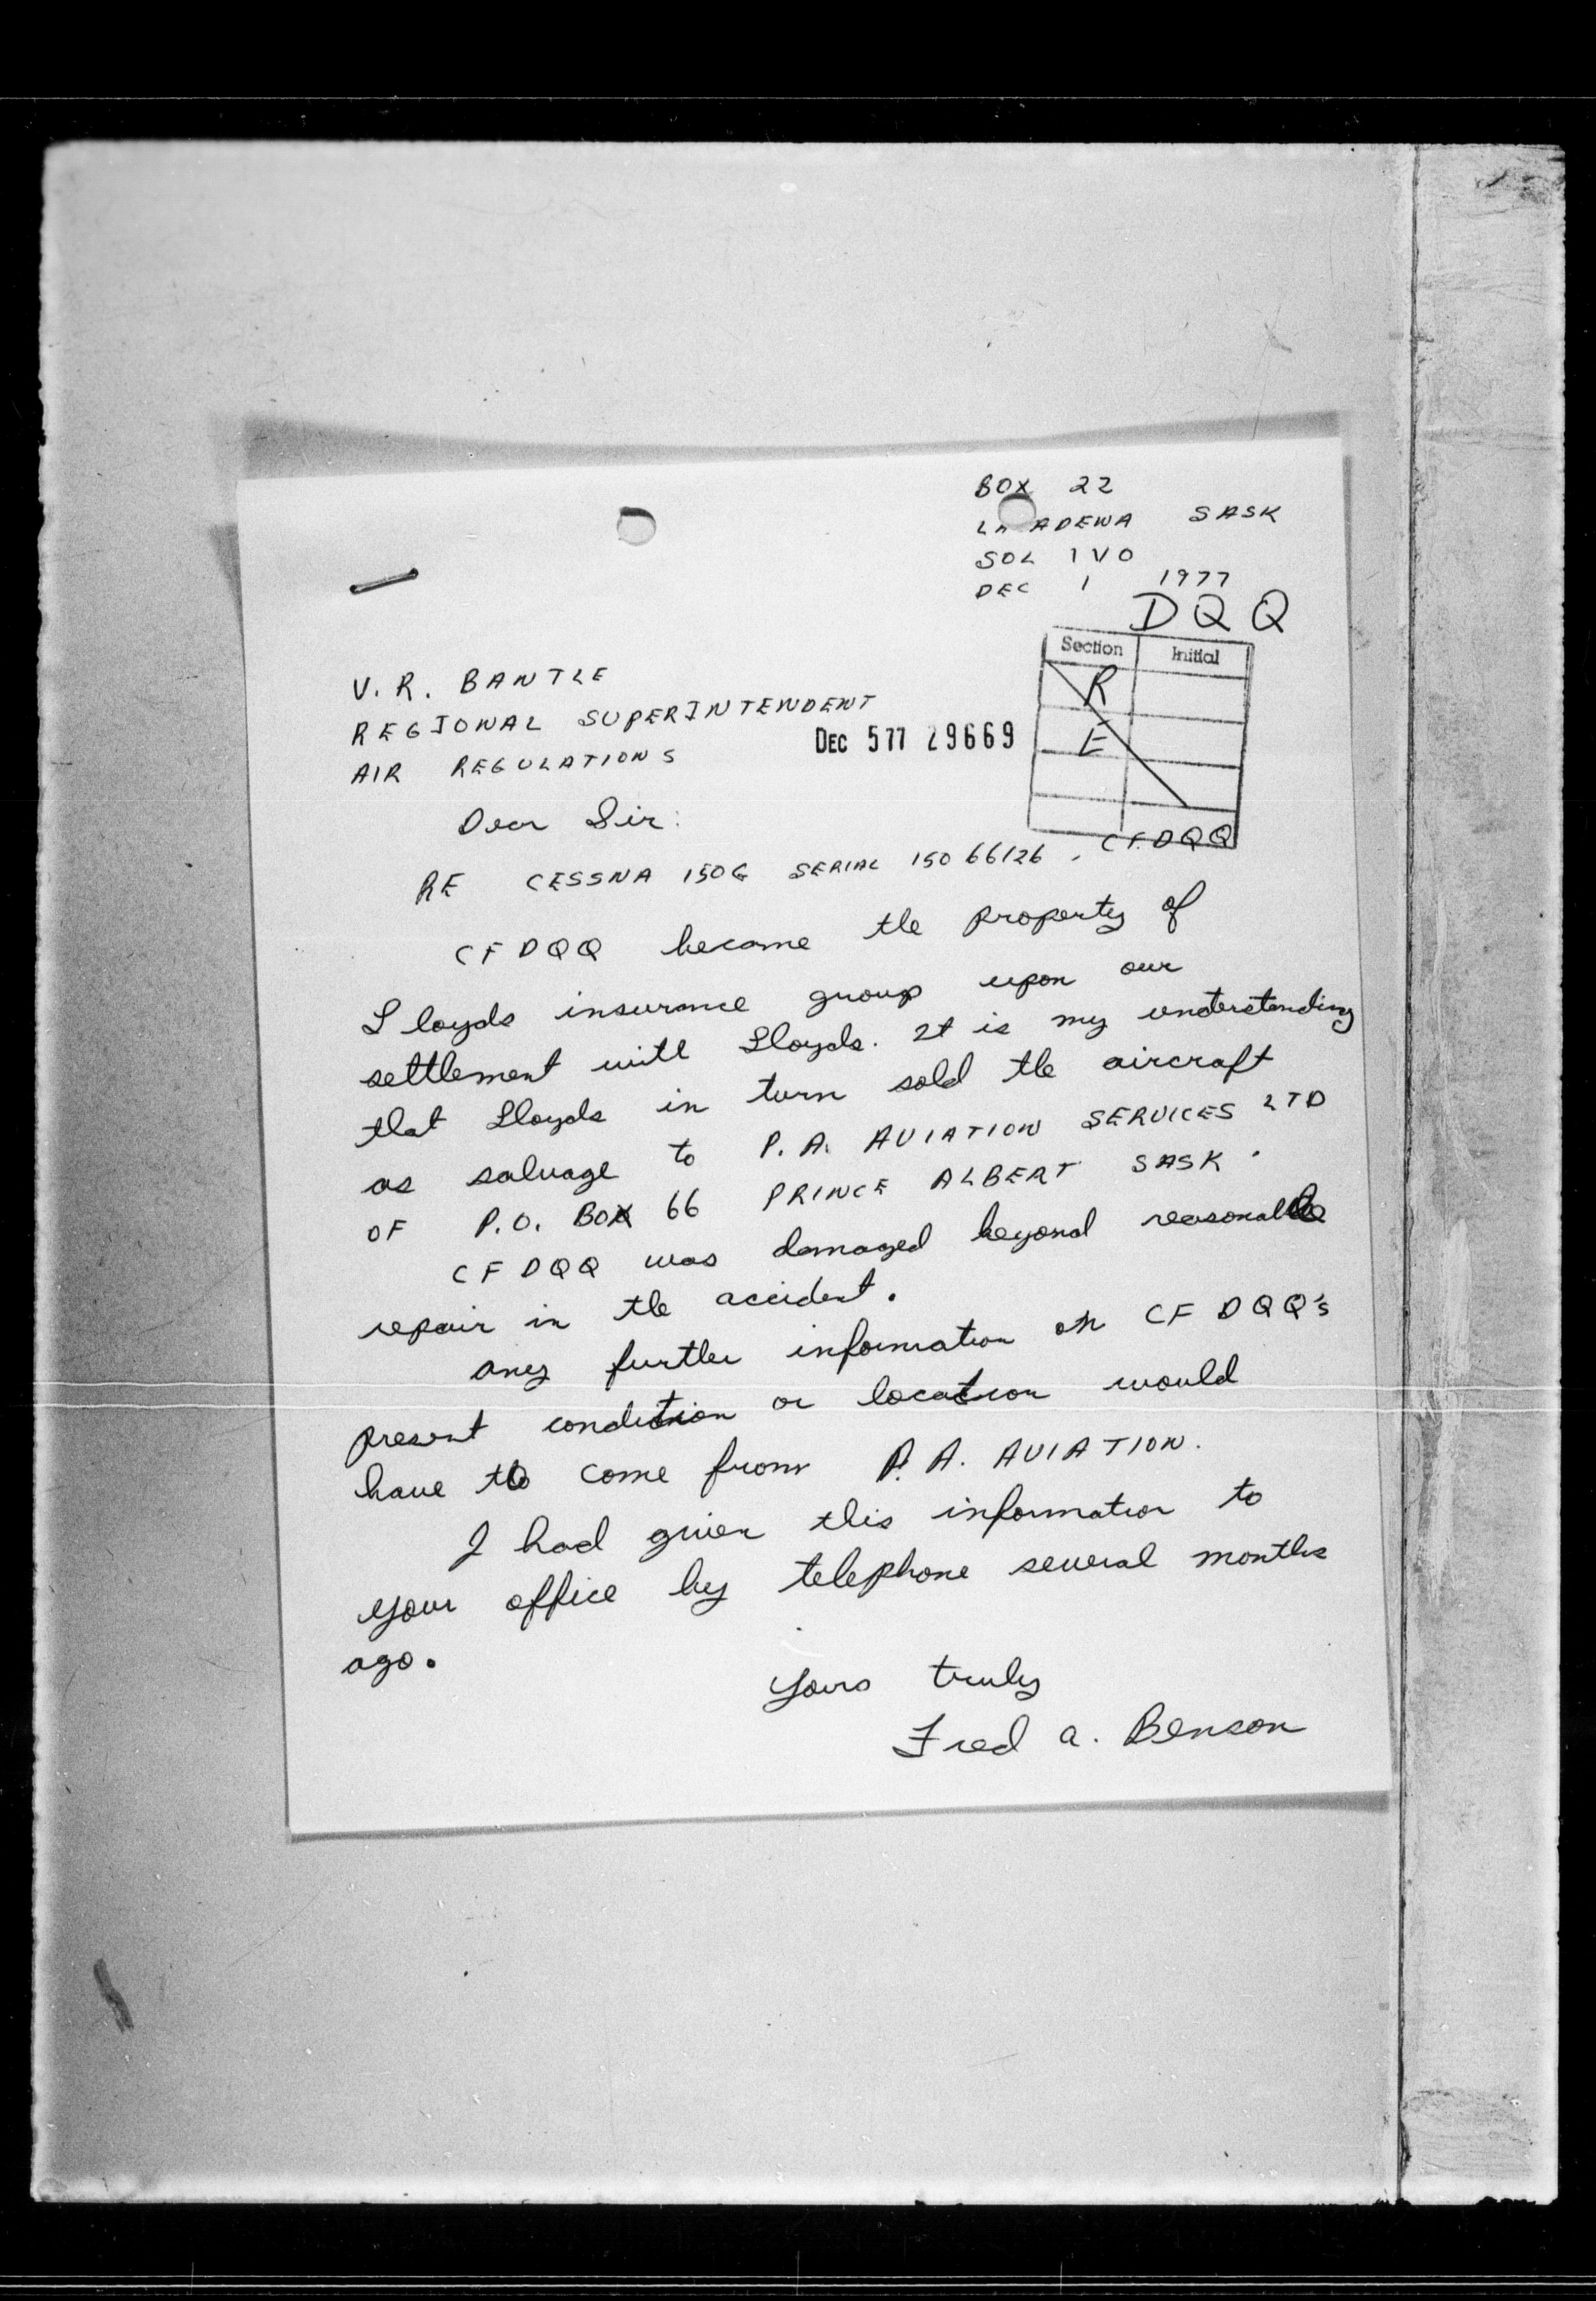 BOX 22
ADENA SASK
SOL 1V0
DEC 1 1977
DQQ
Section Initial
R
E
V. R. BANTLE
REGIONAL SUPERINTENDENT
AIR REGULATIONS
DEC 5 77 29669
Dear Sir:
RE CESSNA 150G SERIAL 150 66126. CFDQQ
CF DQQ became the property of
Lloyds insurance group upon our
settlement with Lloyds. It is my understanding
that Lloyds in turn sold the aircraft
as salvage to P. A. AVIATION SERVICES LTD
OF P.O. BOX 66 PRINCE ALBERT SASK.
CF DQQ was damaged beyond reasonable
repair in the accident.
Any further information on CF DQQ's
present condition or location would
have to come from P. A. AVIATION.
I had given this information to
your office by telephone several months
ago.
Yours truly
Fred A. Benson